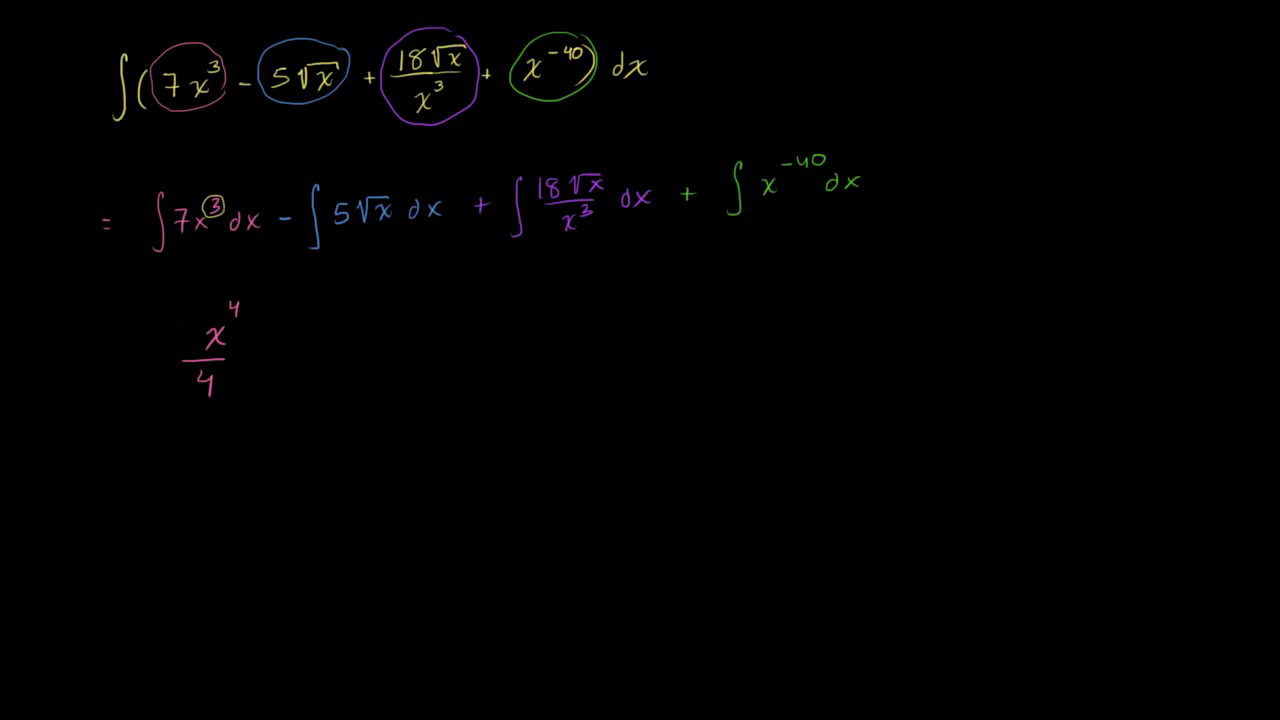 ∫(7x³ - 5√x + 18√x/x³ + x⁻⁴⁰) dx
= ∫7x³dx - ∫5√x dx + ∫18√x/x³ dx + ∫x⁻⁴⁰dx
x⁴/4